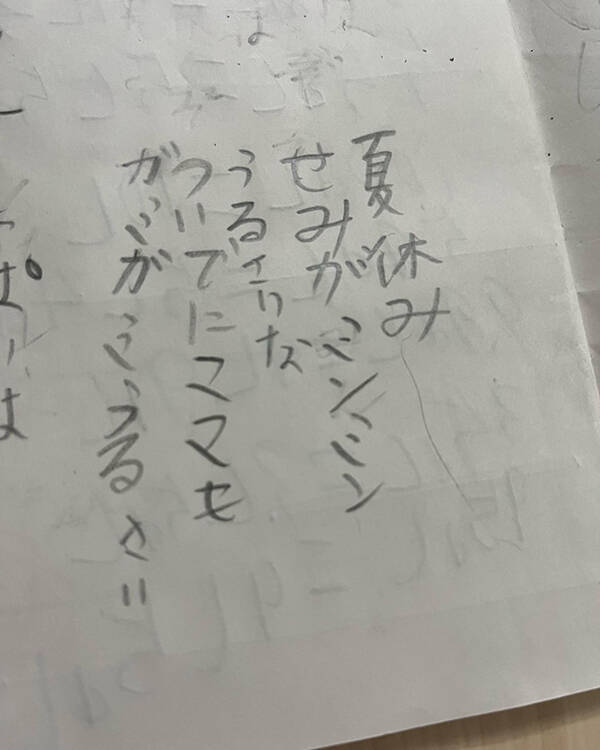 夏休み
せみがミンミン
うるさいな
ついでにママも
がミがミうるさい